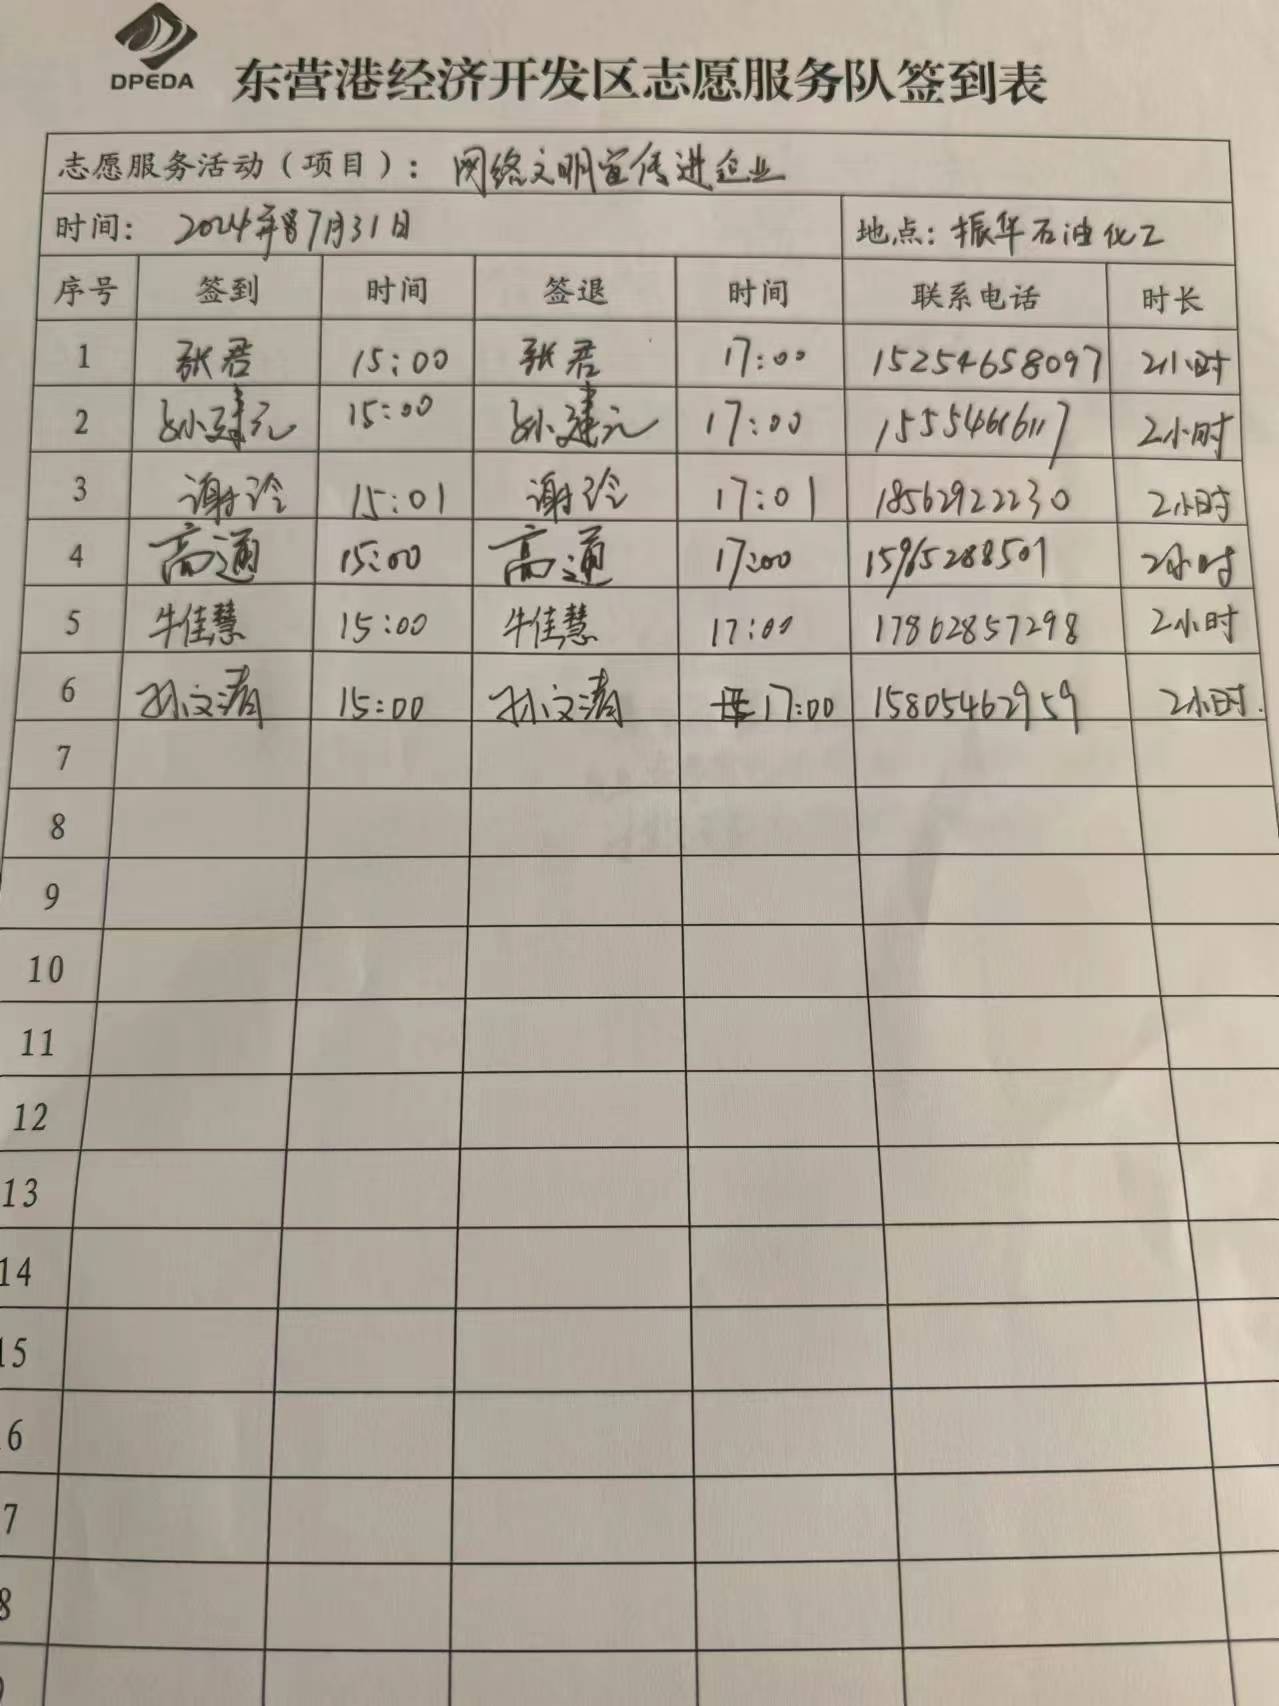 DPEDA
东营港经济开发区志愿服务队签到表
志愿服务活动（项目）：网络文明宣传进企业
时间：2024年7月31日 地点：振华石油化工
序号 签到 时间 签退 时间 联系电话 时长
1 张君 15:00 张君 17:00 15254658097 2小时
2 孙建元 15:00 孙建元 17:00 2小时
3 谢玲 15:01 谢玲 17:01 18562922230 2小时
4 高通 15:00 高通 17:00 15965288501 2小时
5 牛佳慧 15:00 牛佳慧 17:00 17862857298 2小时
6 孙文涛 15:00 孙文涛 17:00 15805462959 2小时.
7
8
9
10
11
12
13
14
15
6
7
8